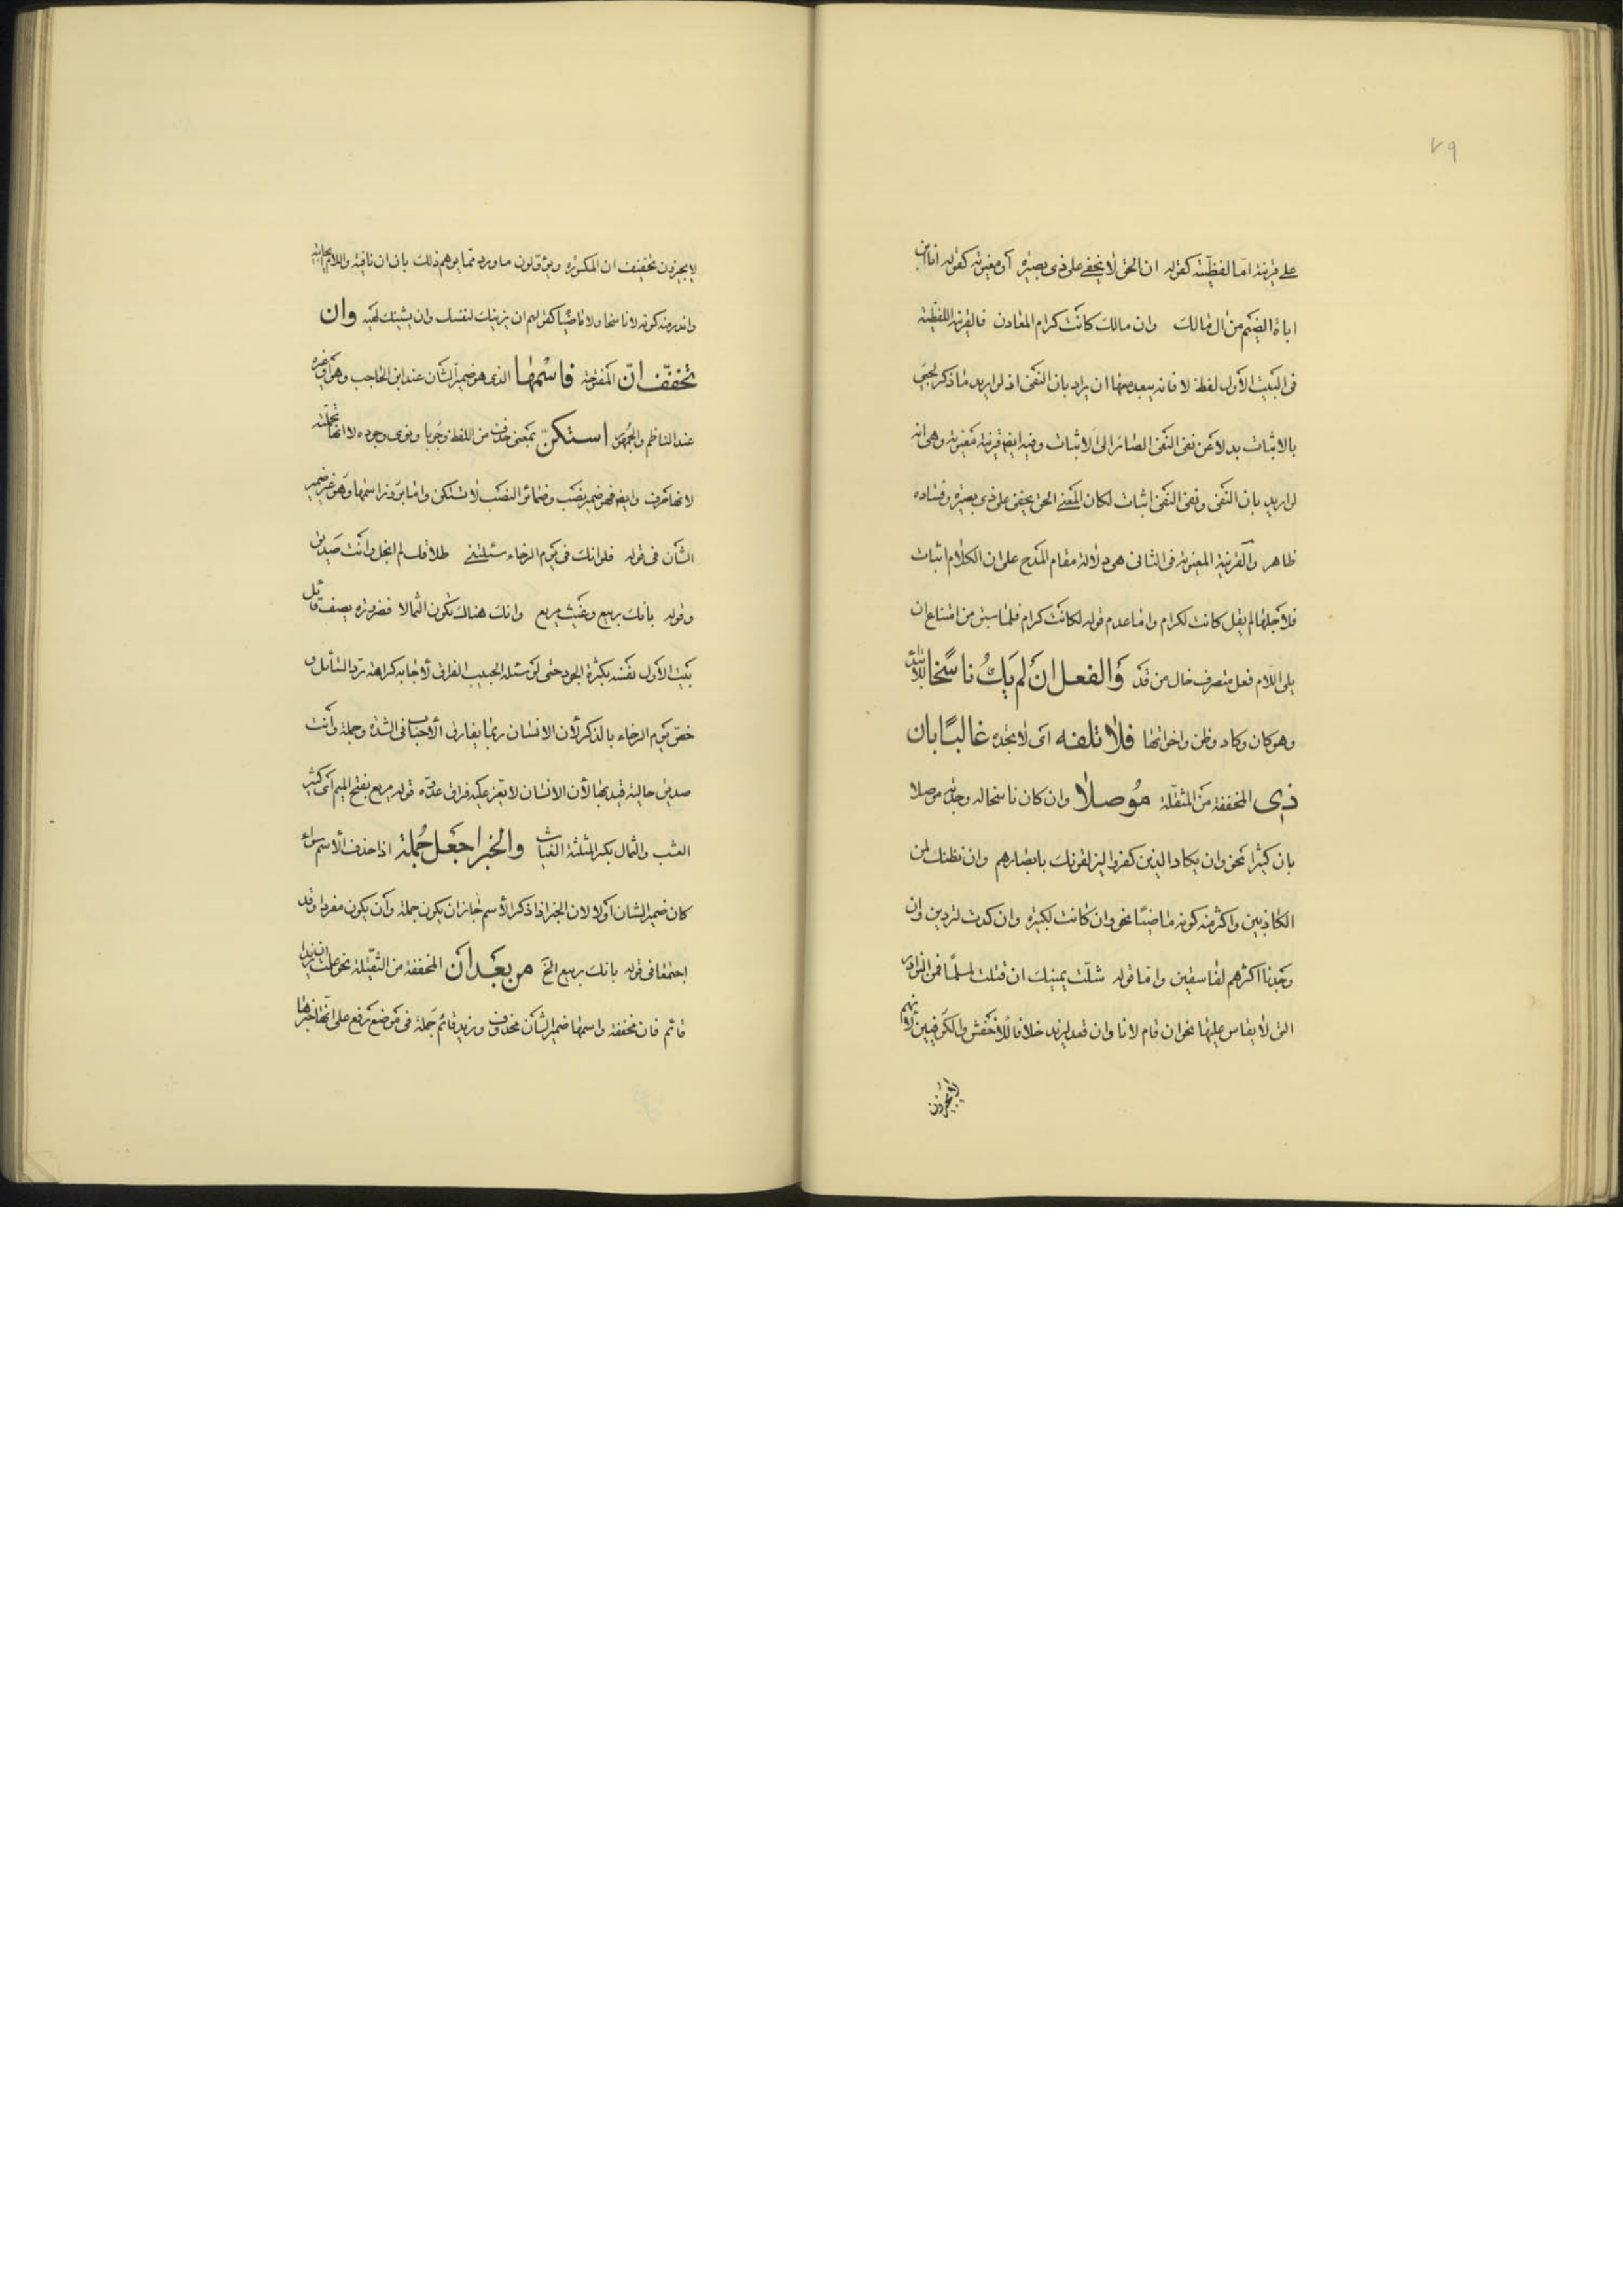 ٧٩
على قرينة اما لفظية كقوله ان الحق لا يخفى على ذى بصيرة او معنوية كقوله انا ابن
اباة الضيم من ال مالك وان مالك كانت كرام المعادن فالقرينة اللفظية
فى البيت الاول لفظ لا فانه يبعد معها ان يراد بان النفى اذ لو اريد ما ذكر لجيئ
بالاثبات بدلا عن نفى النفى الصائر الى الاثبات وفيه ايض قرينة معنوية وهى انه
لو اريد بان النفى ونفى النفى اثبات لكان المعنى الحق يخفى على ذى بصيرة وفساده
ظاهر والقرينة المعنوية فى الثانى هى دلالة مقام المدح على ان الكلام اثبات
فلاجلها لم يقل كانت لكرام واما عدم قوله لكانت كرام فلما سبق من امتناع ان
يلى اللام فعل متصرف خال من قد والفعل ان لم يك ناسخا للابتداء
وهو كان وكاد وظن واخواتها فلا تلفه اى لا تجده غالبا بان
ذى المخففة من المثقلة موصلا وان كان ناسخا له وجدته موصلا
بان كثيرا نحو وان يكاد الذين كفروا ليزلقونك بابصارهم وان نظنك لمن
الكاذبين واكثر منه كونه ماضيا نحو وان كانت لكبيرة وان كدت لتردين وان
وجدنا اكثرهم لفاسقين واما قوله شلت يمينك ان قتلت لمسلما فمن النوادر
التى لا يقاس عليها نحو ان قام لانا وان قعد لزيد خلافا للاخفش والكوفيين لانهم
لا يجيزون
لا يجيزون تخفيف ان المكسورة ويؤولون ما ورد مما يوهم ذلك بان ان نافية واللام ايجابية
واندر منه كونه لا ناسخا ولا ماضيا كقولهم ان يزينك لنفسك وان يشينك لهيه وان
تخفف ان المفتوحة فاسمها الذى هو ضمير الشأن عند ابن الحاجب وهو او غيره
عند الناظم والجمهور استكن بمعنى حذف من اللفظ وجوبا ونوى وجوده لا انها تحملته
لانها حرف وايض فهو ضمير نصب وضمائر النصب لا تستكن واما بروز اسمها وهو غير ضمير
الشأن فى قوله فلو انك فى يوم الرخاء سئلتنى طلاقك لم ابخل وانت صديق
وقوله بانك ربيع وغيث مريع وانك هناك تكون الثمالا فضرورة يصف قائل
بيت الاول نفسه بكثرة الجود حتى لو سئله الحبيب الفراق لاجابه كراهة رد السائل و
خص يوم الرخاء بالذكر لأن الانسان ربما يفارق الاحباب فى الشدة وجملة وانت
صديق حالية قيد بها لأن الانسان لا يعز عليه فراق عدوه قوله مريع بفتح الميم اى كثير
العشب والثمال بكسر المثلثة الغياث والخبر اجعل جملة اذا حذف الأسم سواء
كان ضمير الشان أولا لان الخبر اذا ذكر الأسم جاز ان يكون جملة وان يكون مفردا وقد
اجتمعا فى قوله بانك ربيع الخ من بعد ان المخففة من الثقيلة نحو علمت ان زيد
قائم فان مخففة واسمها ضمير الشأن محذوف وزيد قائم جملة فى موضع رفع على انها خبرها